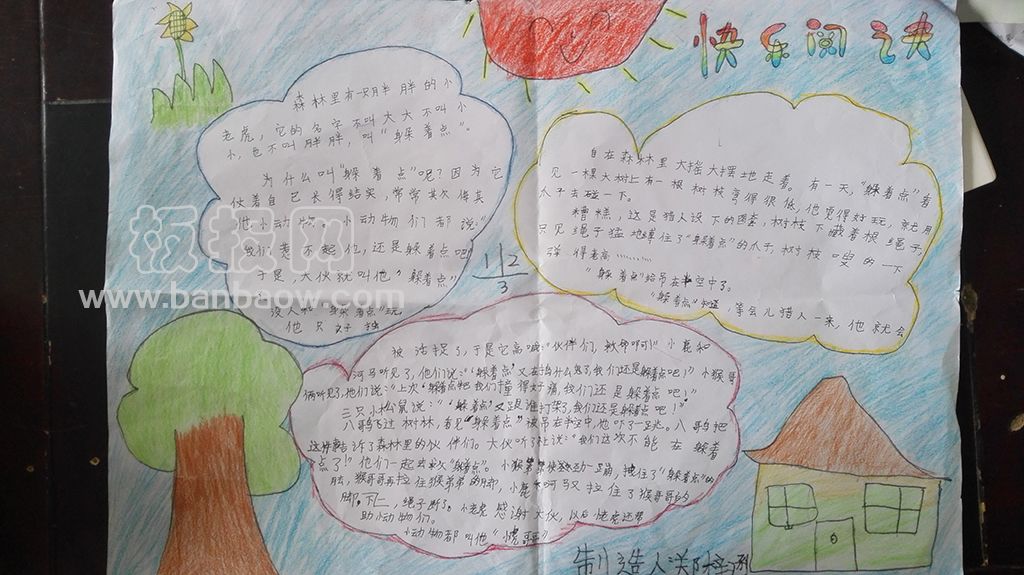 快乐阅读
森林里有一只胖胖的小
老虎，它的名字不叫大大不叫小
小，也不叫胖胖，叫“躲着点”。
为什么叫“躲着点”呢？因为它
仗着自己长得结实，常常其欠侮其
他小动物，小动物们都说：“
我们惹不起他，还是躲着点吧
于是，大伙就叫他“躲着点”
没人和“躲着点”玩，
他只好独
1 2
3
自在森林里大摇大摆地走着。有一天，“躲着点”看
见一棵大树上有一根树枝弯得很低，他觉得好玩，就用
爪子去碰一下。
糟糕，这是猎人设下的圈套，树枝下藏着根绳子，
只见绳子猛地缚住了“躲着点”的爪子，树枝“嗖的一下
弹得老高………
“躲着点”给吊在半空中了。
“躲着点”知道，等会儿猎人一来，他就会
被活捉了，于是它高喊：“伙伴们，救命呀！”小鹿和
河马听见了，他们说：“‘躲着点’又在搞什么鬼了，我们还是躲着点吧！”小猴哥
俩听见了，他们说：“上次‘躲着点’把我们撞得好痛，我们还是躲着点吧！”
三只小松鼠说：“‘躲着点’又跟谁打架了，我们还是躲着点吧！”
八哥飞过树林，看见“躲着点”被吊在半空中，他吓了一跳。八哥把
这件事告诉了森林里的伙伴们。大伙听了社说：“我们这次不能在躲着
点了！”他们一起去救“躲着点”。小猴
拉住了“躲着点”的
腿，猴哥哥再拉住猴弟弟的脚，小鹿
呵又拉住了猴哥哥的
脚，
绳子断了。小老虎感谢大伙，以后
还帮
助小动物们。
小动物都叫他“虎哥哥”
制造人郑
板报网
www.banbaow.com